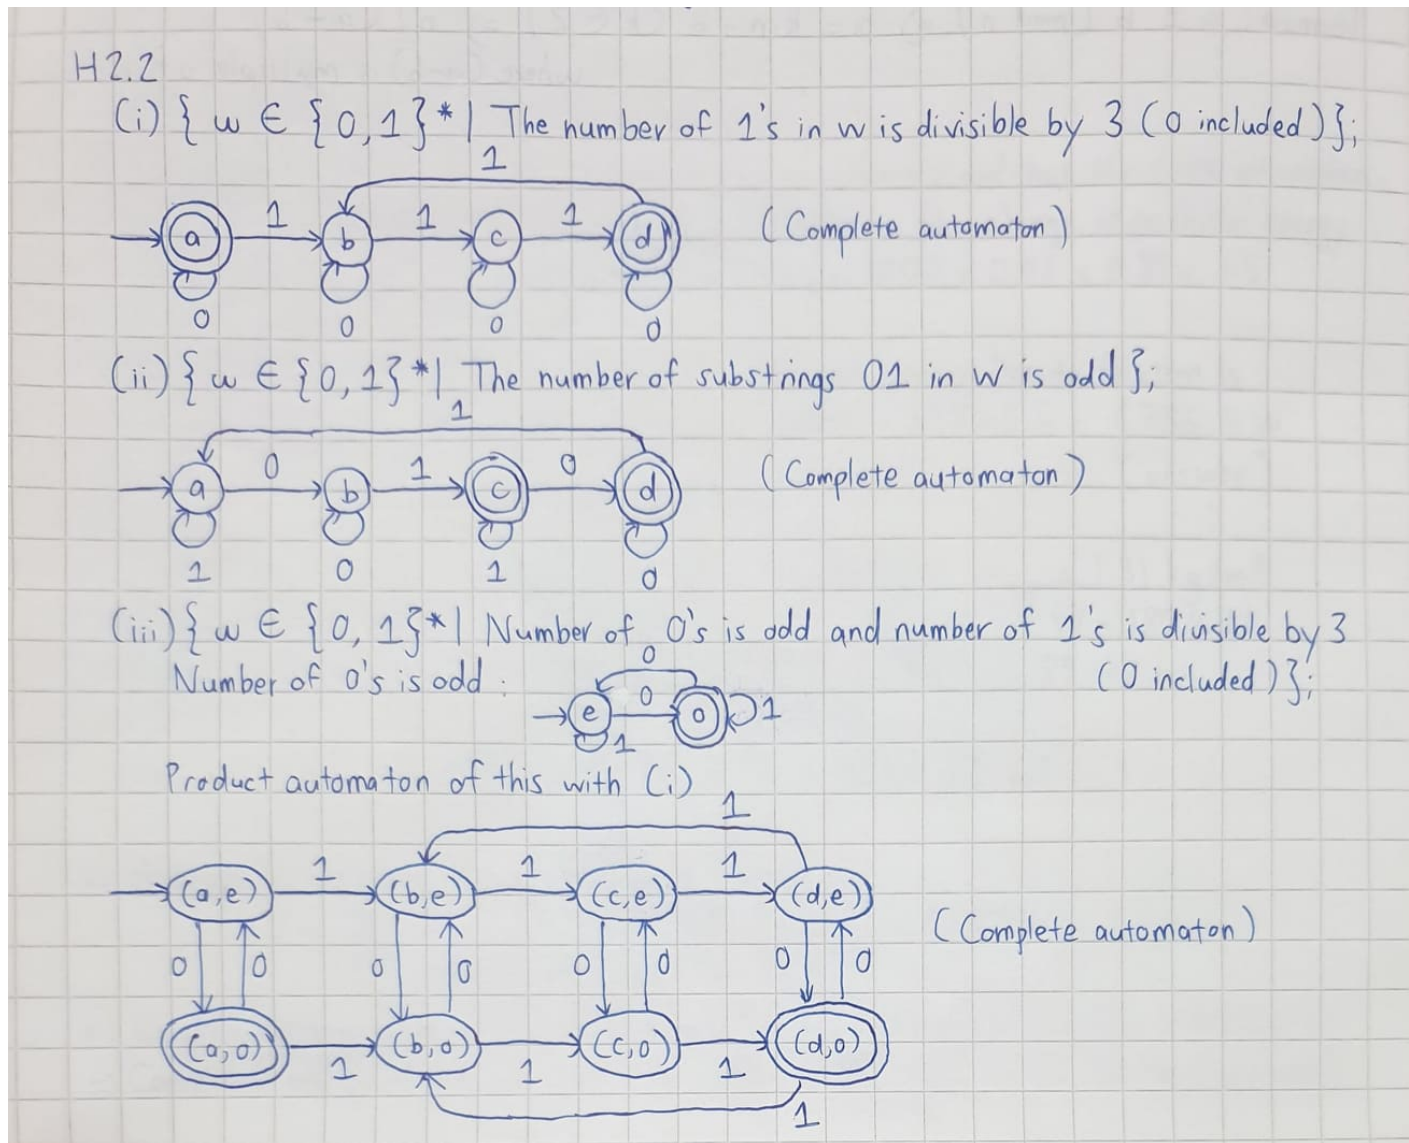 H2.2
(i) { w ∈ {0,1}* | The number of 1's in w is divisible by 3 (0 included)};
1
a 1 b 1 c 1 d (Complete automaton)
0 0 0 0
(ii) { w ∈ {0,1}* | The number of substrings 01 in w is odd };
1
a 0 b 1 c 0 d (Complete automaton)
1 0 1 0
(iii) { w ∈ {0,1}* | Number of 0's is odd and number of 1's is divisible by 3
(0 included)};
Number of 0's is odd :
0
e 0 o 1
1
Product automaton of this with (i)
1
(a,e) 1 (b,e) 1 (c,e) 1 (d,e)
(Complete automaton)
0 0 0 0 0 0 0 0
(a,o) 1 (b,o) 1 (c,o) 1 (d,o)
1